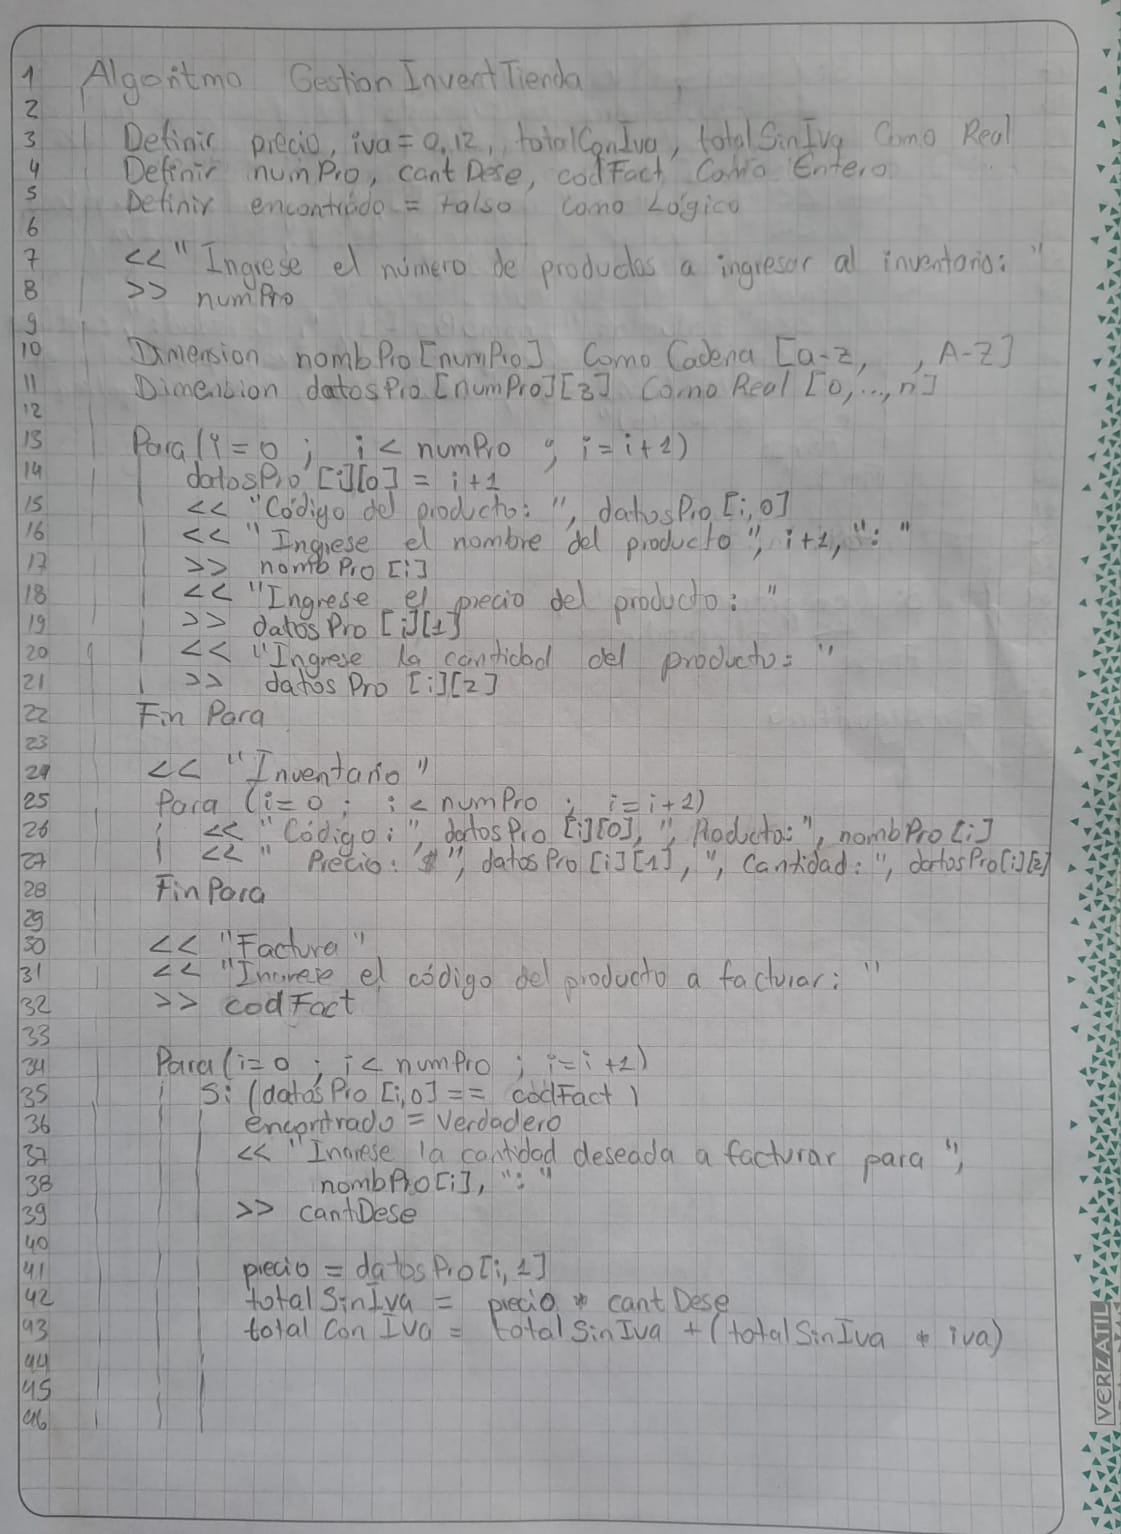 1 Algoritmo GestionInventTienda
2
3 Definir precio, iva = 0.12, totalConIva, totalSinIva Como Real
4 Definir numPro, cantDese, codFact Como Entero
5 Definir encontrado = falso Como Lógico
6
7 << "Ingrese el número de productos a ingresar al inventario: "
8 >> numPro
9
10 Dimension nombPro[numPro] Como Cadena [a-z, , A-Z]
11 Dimension datosPro[numPro][3] Como Real [0,...,n]
12
13 Para (i = 0 ; i < numPro ; i = i+1)
14 datosPro [i][0] = i+1
15 << "Código del producto: ", datosPro [i,0]
16 << "Ingrese el nombre del producto", i+1, ": "
17 >> nombPro [i]
18 << "Ingrese el precio del producto: "
19 >> datosPro [i][1]
20 << "Ingrese la cantidad del producto: "
21 >> datosPro [i][2]
22 Fin Para
23
24 << "Inventario"
25 Para (i = 0 ; i < numPro ; i = i+1)
26 << "Código: ", datosPro [i][0], ", Producto: ", nombPro [i]
27 << " Precio: $", datosPro [i][1], ", Cantidad: ", datosPro[i][2]
28 FinPara
29
30 << "Factura"
31 << "Ingrese el código del producto a facturar: "
32 >> codFact
33
34 Para (i = 0 ; i < numPro ; i = i+1)
35 Si (datosPro [i,0] == codFact)
36 encontrado = Verdadero
37 << "Ingrese la cantidad deseada a facturar para ",
38 nombPro[i], ": "
39 >> cantDese
40
41 precio = datosPro[i,1]
42 totalSinIva = precio * cantDese
43 totalConIva = totalSinIva + (totalSinIva * iva)
44
45
46
VERZATIL